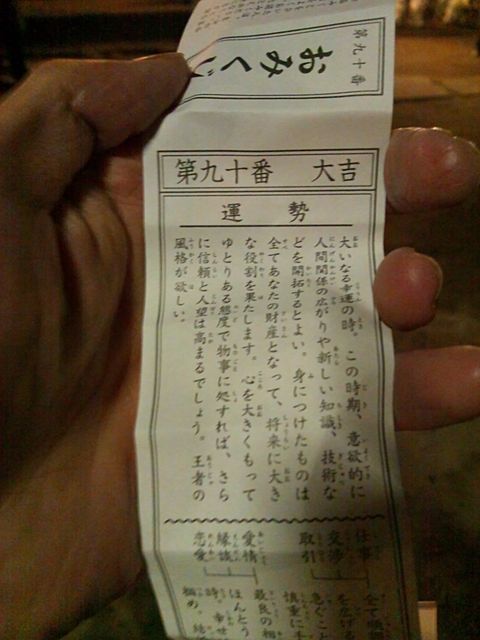 第九十番
おみく
第九十番 大吉
運勢
大いなる幸運の時。この時期、意欲的に
人間関係の広がりや新しい知識、技術な
どを開拓するとよい。身につけたものは
全てあなたの財産となって、将来に大き
な役割を果たします。心を大きくもって
ゆとりある態度で物事に処すれば、さら
に信頼と人望は高まるでしょう。王者の
風格が欲しい。
仕事
交渉
取引
全て順
を広げ
急ぐこと
慎重に
愛情
縁談
恋愛
最良の相
ほんとう
時。幸せ